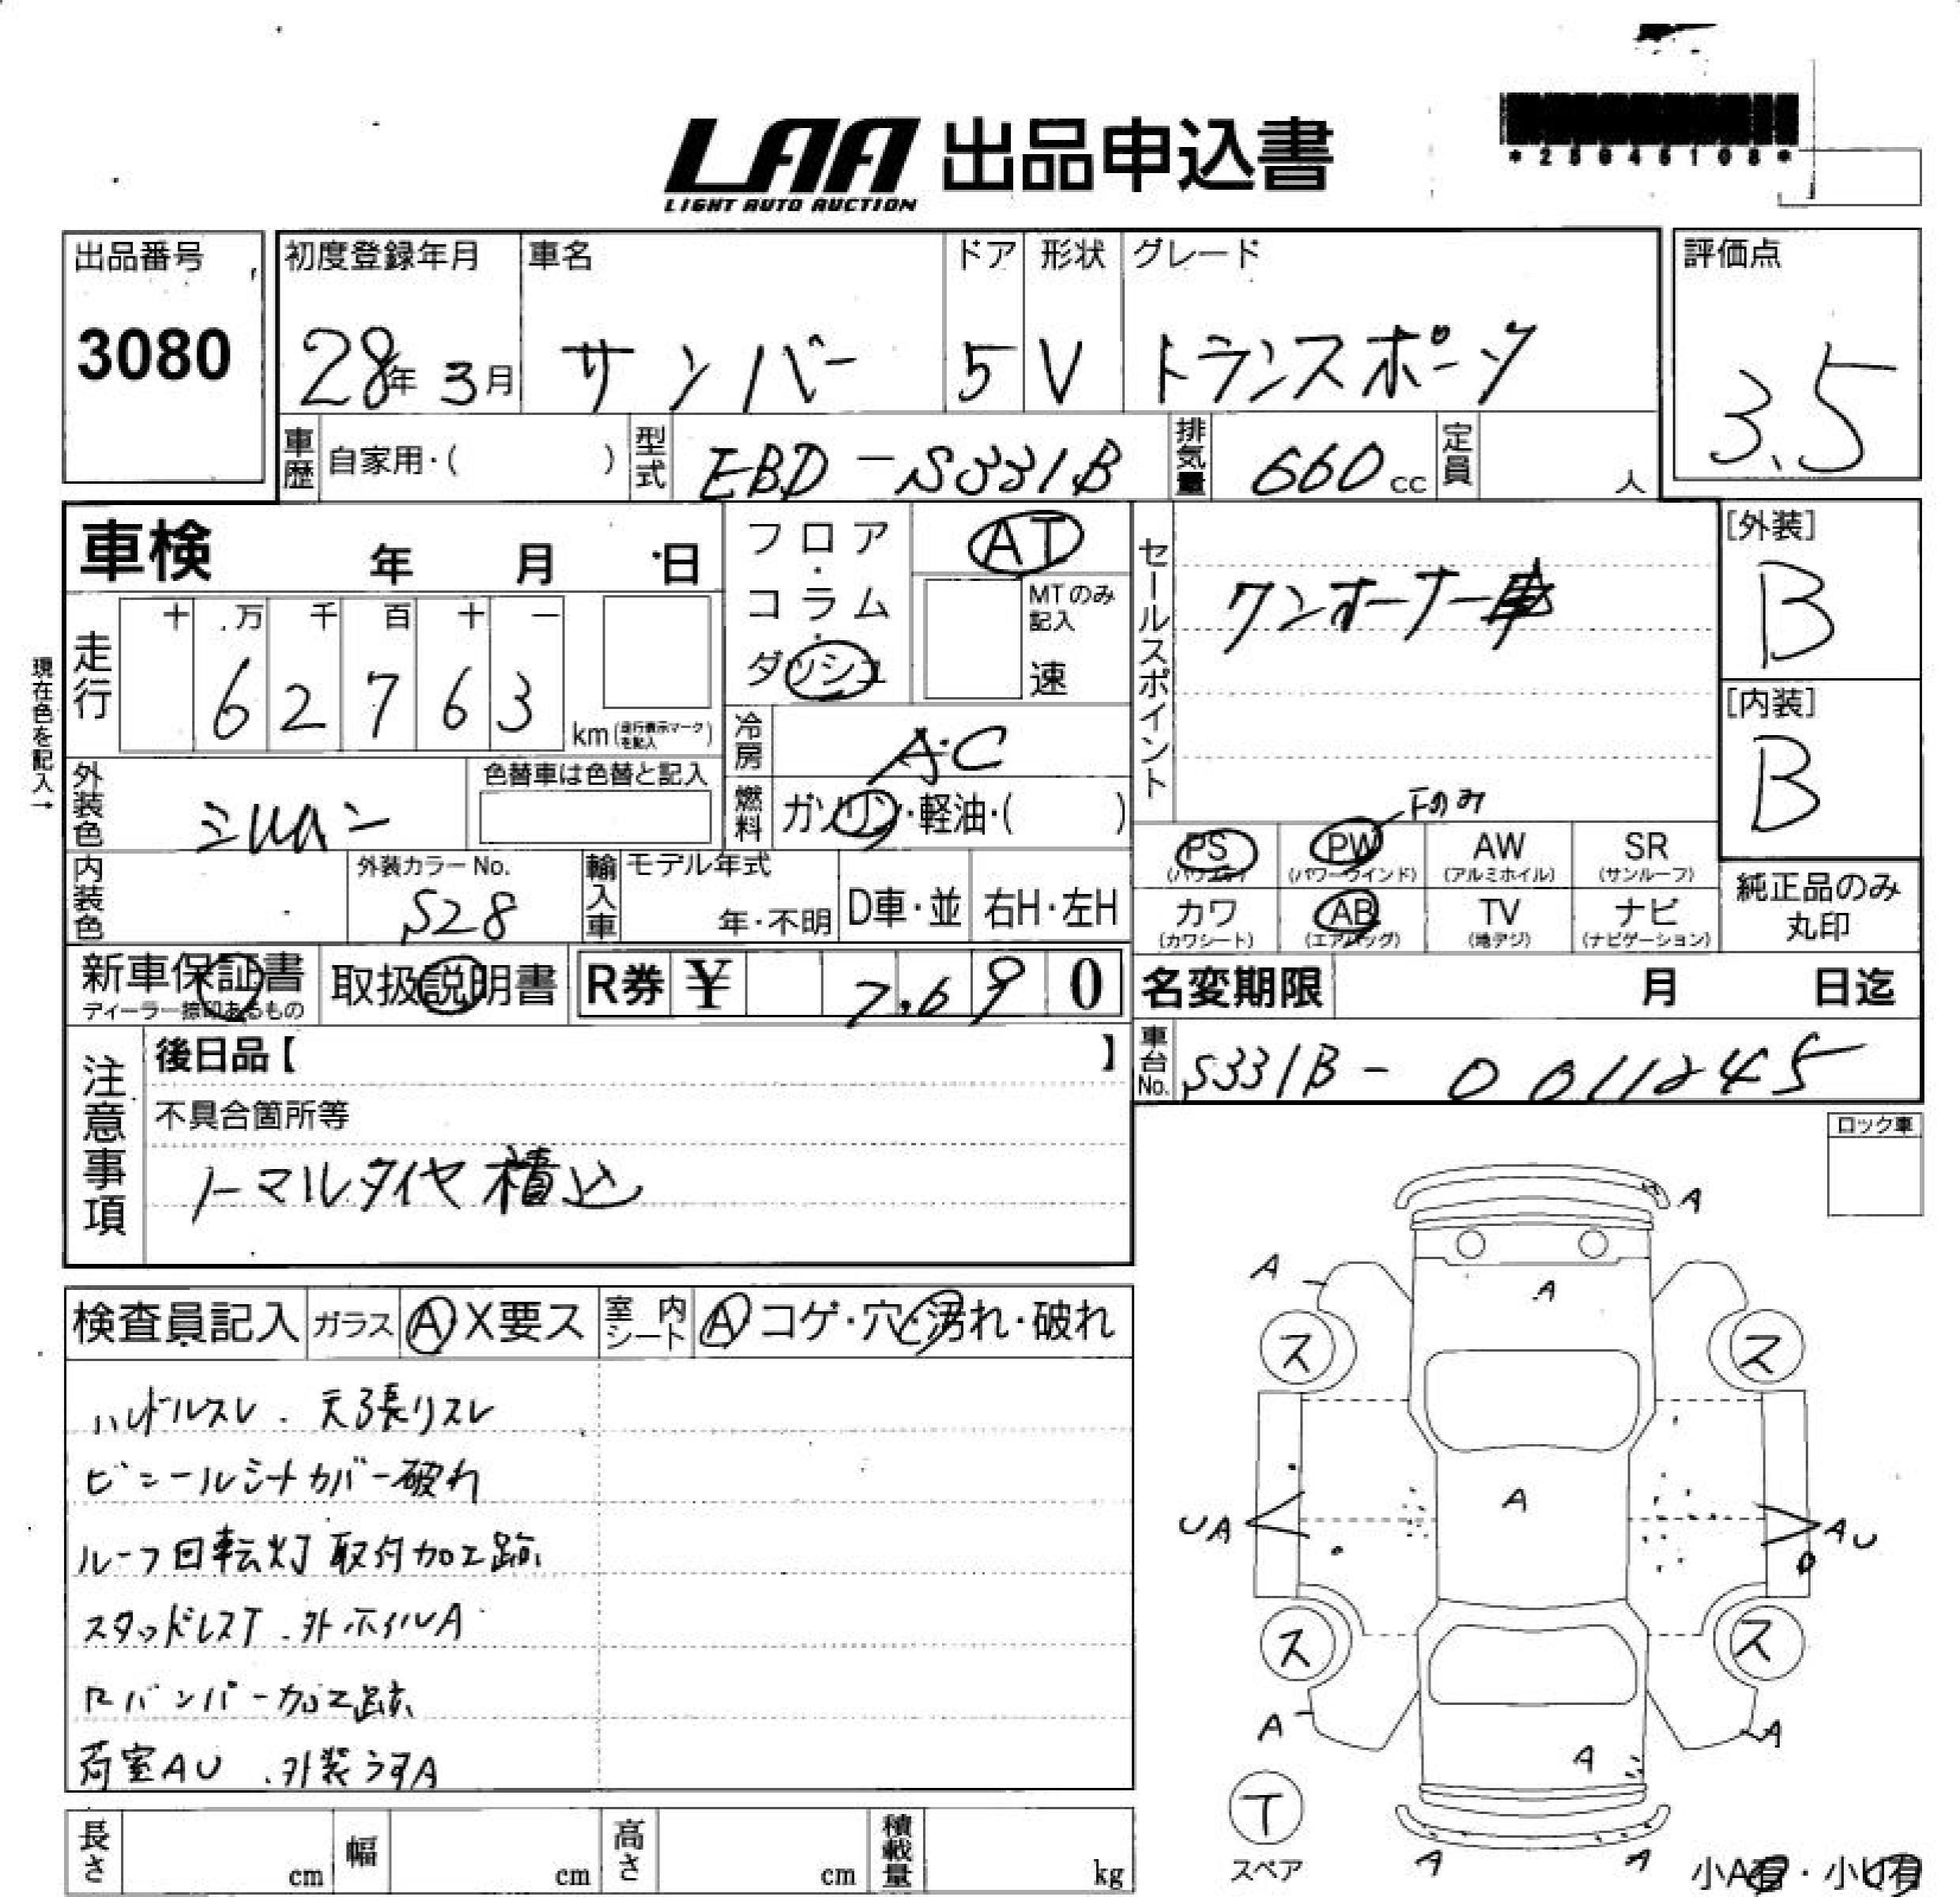 LAA 出品申込書
LIGHT AUTO AUCTION
*25045108*
出品番号
3080
初度登録年月
28年 3月
車名
サンバー
ドア
5
形状
V
グレード
トランスポータ
評価点
3.5
車歴
自家用・( )
型式
EBD-S331B
排気量
660cc
定員
人
車検 年 月 日
フロア・コラム・ダッシュ
AT
MTのみ記入
速
セールスポイント
ワンオーナー車
[外装]
B
[内装]
B
現在色を記入→
走行
十 万 千 百 十 一
6 2 7 6 3
km(走行表示マークを記入)
冷房
A・C
外装色
シルバー
色替車は色替と記入
燃料
ガソリン・軽油・( )
Fのみ
PS PW AW SR
(パワステ) (パワーウインド) (アルミホイル) (サンルーフ)
カワ AB TV ナビ
(カワシート) (エアバッグ) (地デジ) (ナビゲーション)
純正品のみ丸印
内装色
外装カラーNo.
S28
輸入車
モデル年式
年・不明
D車・並
右H・左H
新車保証書
ディーラー捺印あるもの
取扱説明書
R券 ¥ 7,690
名変期限 月 日迄
車台No.
S331B-0011245
注意事項
後日品【 】
不具合箇所等
ノーマルタイヤ積込
ロック車
検査員記入 ガラス A X要ス 室内シート A コゲ・穴・汚れ・破れ
ハンドルスレ . 天張りスレ
ビニールシートカバー破れ
ルーフ回転灯取付加工跡
スタッドレスT . 外ホイルA
Rバンパー加工跡
荷室AU . 外装うすA
A
A
A
ス ス
A
UA
AU
ス ス
A
A
A
T
スペア
A
A
小A有・小U有
長さ cm 幅 cm 高さ cm 積載量 kg